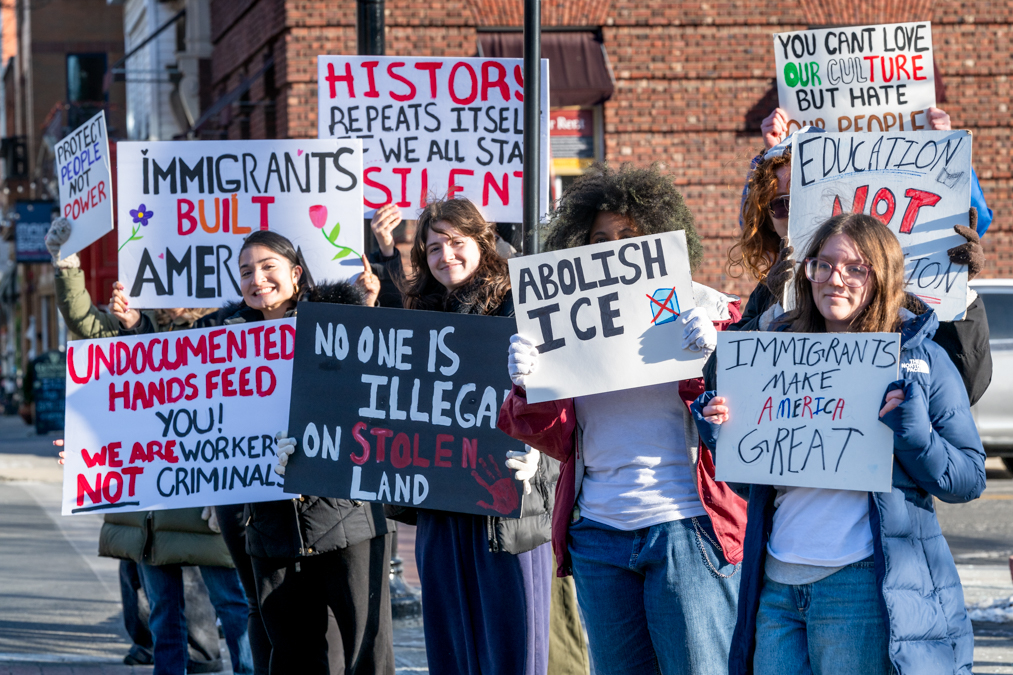 PROTECT
PEOPLE
NOT
POWER
IMMIGRANTS
BUILT
AMER
HISTORY
REPEATS ITSEL
WE ALL STA
SILENT
YOU CANT LOVE
OUR CULTURE
BUT HATE
OUR PEOPLE
EDUCATION
NOT
UNDOCUMENTED
HANDS FEED
YOU!
WE ARE WORKERS
NOT CRIMINALS
NO ONE IS
ILLEGA
ON STOLEN
LAND
ABOLISH
ICE
IMMIGRANTS
MAKE
AMERICA
GREAT
THE NORTH FACE